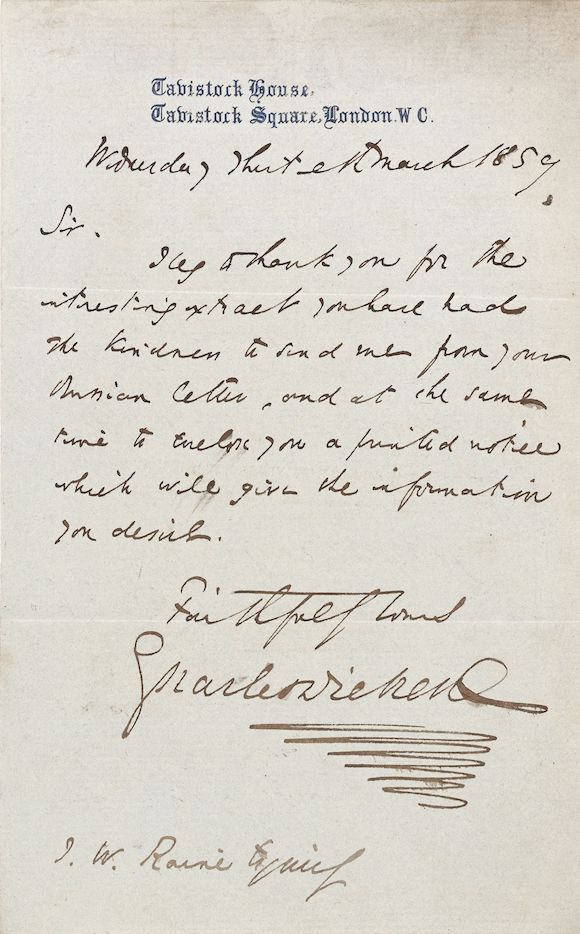 Tavistock House,
Tavistock Square, London. W C.
Wednesday Thirtieth March 1859.
Sir.
I beg to thank you for the
interesting extract you have had
the kindness to send me from your
Russian letter, and at the same
time to enclose you a printed notice
which will give the information
you desire.
Faithfully Yours
Charles Dickens
J. W. Esquire